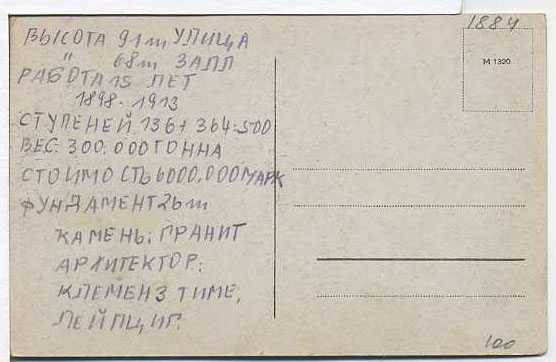 ВЫСОТА 91m УЛИЦА
" 68m ЗАЛЛ
РАБОТА 15 ЛЕТ
1898-1913
СТУПЕНЕЙ 136+364=500
ВЕС: 300.000 ТОННА
СТОИМОСТЬ 6000,000 МАРК
ФУНДАМЕНТ 26m
КАМЕНЬ: ГРАНИТ
АРХИТЕКТОР:
КЛЕМЕНЗ ТИМЕ,
ЛЕЙПЦИГ.
1884
M 1320
100